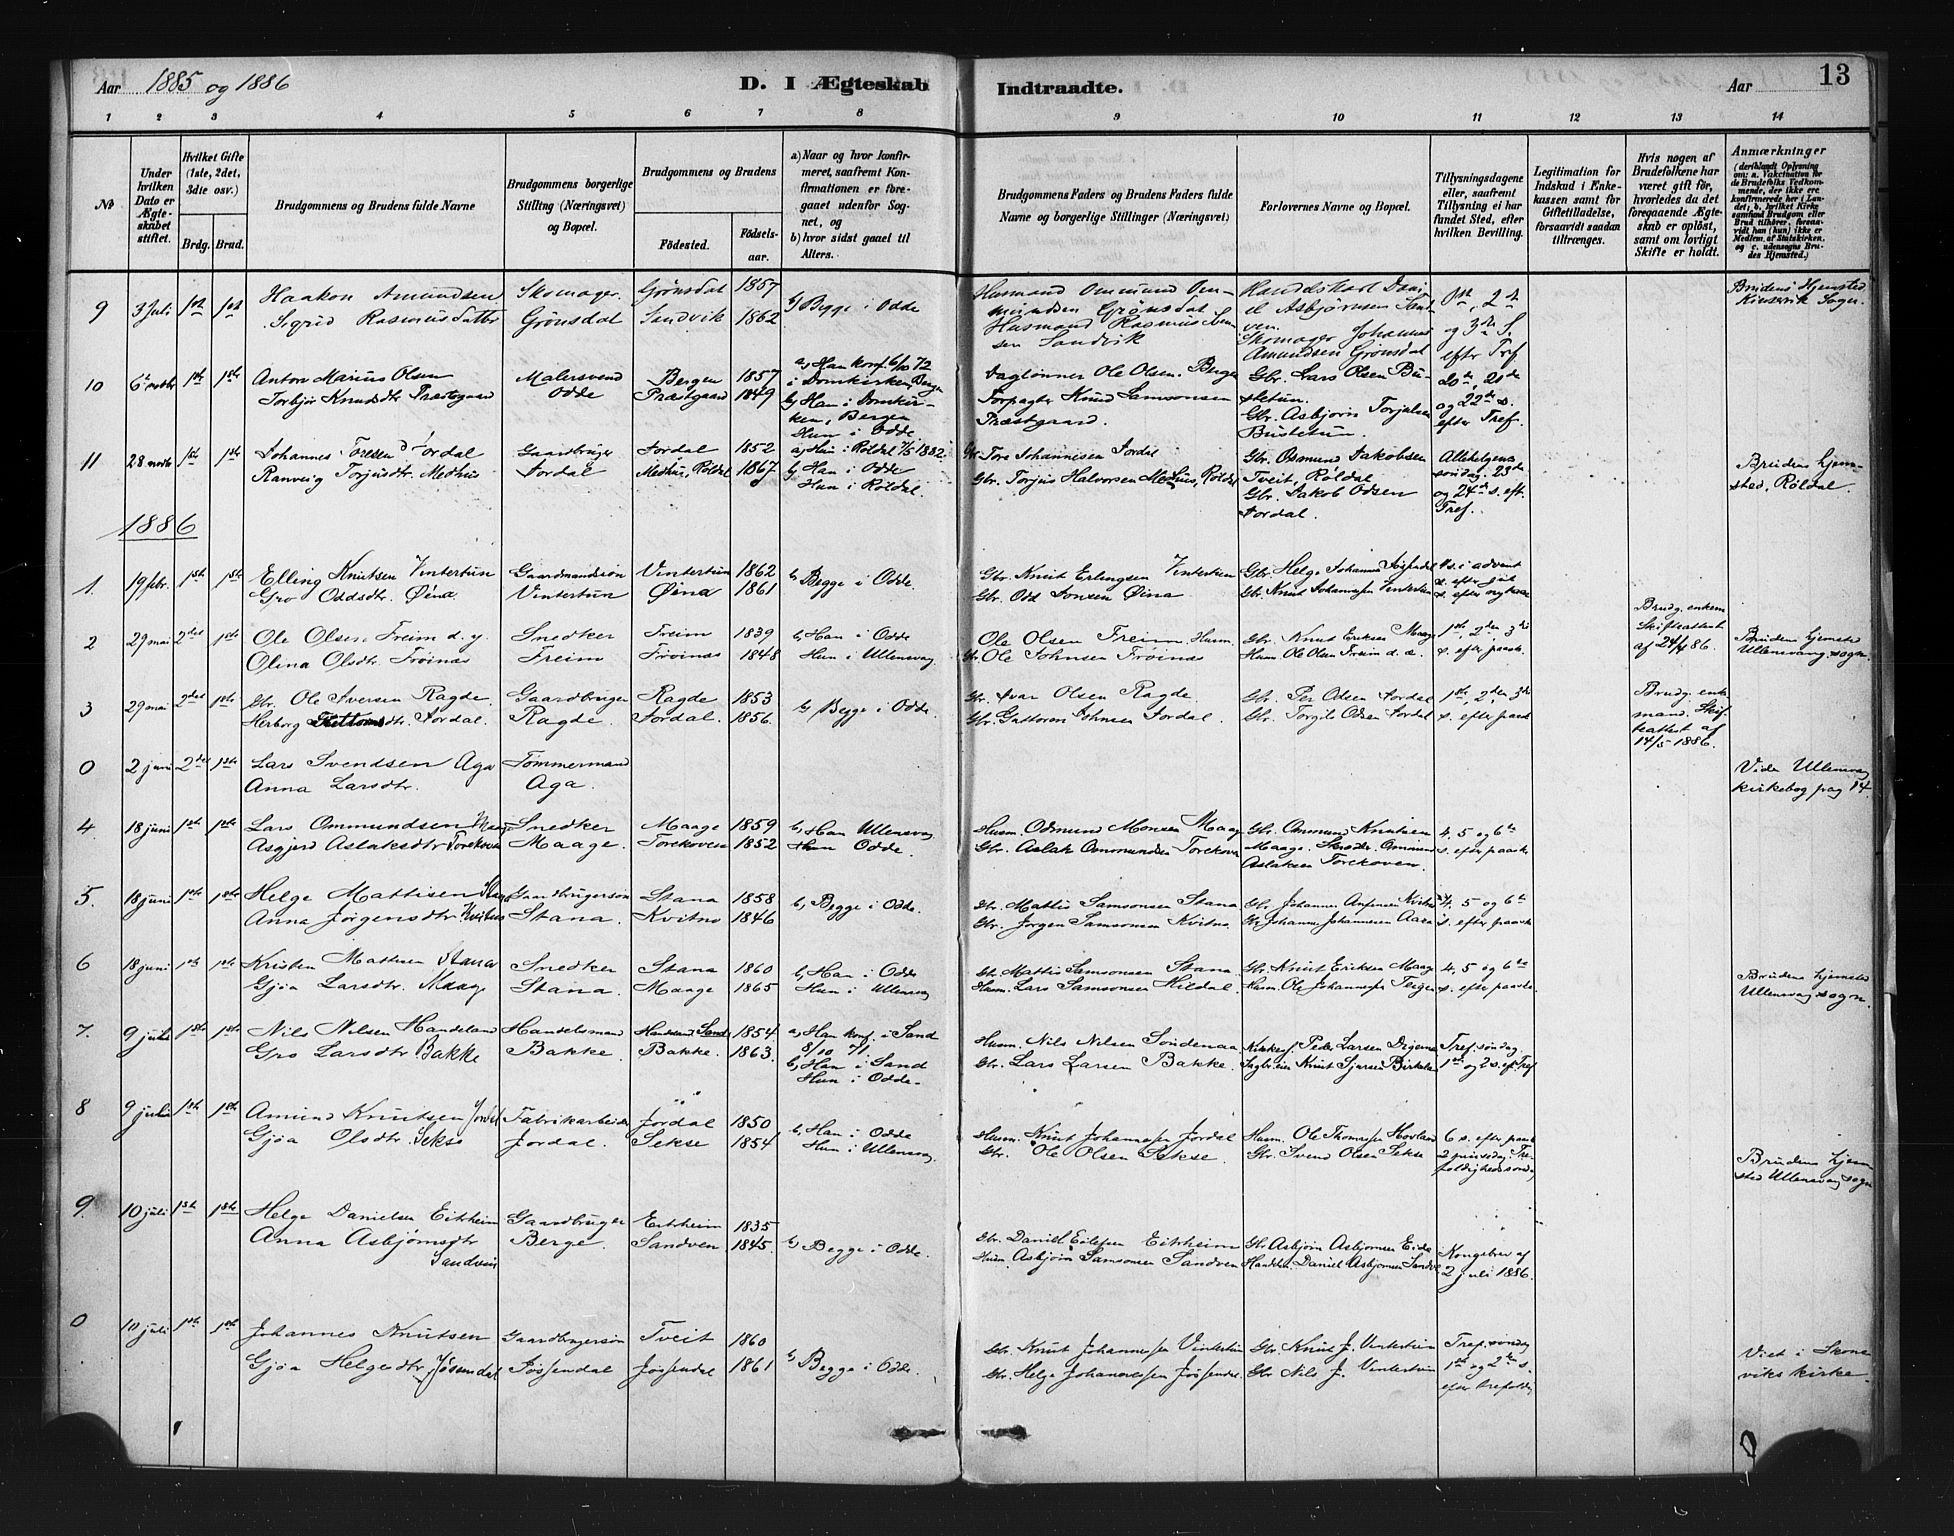 Aar 1885 og 1886
D. I Ægteskab Indtraadte.
Aar 13
1 2 3 4 5 6 7 8 9 10 11 12 13 14
No
Under hvilken Dato er Ægteskabet stiftet.
Hvilket Gifte (1ste, 2det, 3die osv.)
Brdg. Brud.
Brudgommens og Brudens fulde Navne
Brudgommens borgerlige Stilling (Næringsvei) og Bopæl.
Brudgommens og Brudens
Fødested. Fødselsaar.
a) Naar og hvor konfirmeret, saafremt Konfirmationen er foregaaet udenfor Sognet, og
b) hvor sidst gaaet til Alters.
Brudgommens Faders og Brudens Faders fulde Navne og borgerlige Stillinger (Næringsvei)
Forlovernes Navne og Bopæl.
Tillysningsdagene eller, saafremt Tillysning ei har fundet Sted, efter hvilken Bevilling.
Legitimation for Indskud i Enkekassen samt for Giftetilladelse, forsaavidt saadan tiltrænges.
Hvis nogen af Brudefolkene har været gift før, hvorledes da det foregaaende Ægteskab er opløst, samt om lovligt Skifte er holdt.
Anmærkninger
(deriblandt Oplysning om: a. Vakcination for de Brudefolks Vedkommende, der ikke ere konfirmerede her i Landet; b. hvilket Kirkesamfund Brudgom eller Brud tilhører, forsaavidt han (hun) ikke er Medlem af Statskirken, og c. udensogns Brudes Hjemsted.)
9 3 juli 1st 1st Haakon Amundsen Skomager. Grønsdal 1857 b, Begge i Odde Husmand Ommund Ommundsen Grønsdal Handelskarl Daniel Asbjørnsen Sandven. 1st, 2d Brudens Hjemsted
Sigrid Rasmusdatter Grønsdal Sandvik 1862 Husmand Rasmus Sandvik Skomager Johannes Amundsen Grønsdal og 3de S. efter Tref Kinservik Sogn
10 6te novbr 1ste 1ste Anton Marius Olsen Malersvend Bergen 1857 a, Han konf. 6/10 72 i Domkirken, Bergen Daglønner Ole Olsen. Bergen Gbr. Lars Olsen Bustetun. 20de, 21de
Torbjør Knudsdtr Præstegaard Odde Præstgaard 1849 b, Han i Domkirken, Bergen Hun i Odde Forpagter Knud Samsonsen Præstgaard. Gbr. Asbjørn Torjulsen Bustetun. og 22de s. efter Tref.
11 28 novbr 1ste 1ste Johannes Toresen Jordal Gaardbruger Jordal 1852 a, Hun i Røldal 1882. Gbr Tore Johannesen Jordal Gbr. Osmund Jakobsen Tveit, Røldal Allehelgens søndag, 23de Brudens hjemsted, Røldal.
Ranveig Torjusdtr. Medhus Jordal Medhus, Røldal 1867 b, Han i Odde Hun i Røldal Gbr. Torjus Halvorsen Medhus, Røldal Gbr. Jakob Odsen Jordal. og 24de s. eft. Tref.
1886
1. 19 febr. 1ste 1ste Elling Knutsen Vintertun Gaardmandssøn Vintertun 1862 b, Begge i Odde Gbr. Knut Erlingsen Vintertun Gbr. Helge Johannes 4 s. i advent s. efter jul
Gro Oddsdtr. Øina Vintertun Øina 1861 Gbr. Odd Jonsen Øina Gbr. Knut Johannessen Vintertun s. efter nytaar
2 29 mai 2det 1ste Ole Olsen Freim d. y. Snedker Freim 1839 b, Han i Odde Ole Olsen Freim. Husm. Gbr. Knut Eriksen Maage 1ste, 2den, 3die Brudg. enkem. Skifteattest af 24/4 86. Brudens hjemsted
Olina Olsdtr. Frøinæs Freim Frøinæs 1848 Hun i Ullensvang Gbr. Ole Johnsen Frøinæs Husm. Ole Olsen Freim d. æ. s. efter paask. Ullensvang sogn.
3 29 mai 2det 1ste Gbr. Ole Iversen Ragde Gaardbruger Ragde 1853 b, Begge i Odde. Gbr. Ivar Olsen Ragde Gbr. Per Odsen Jordal 1ste, 2den, 3die Brudg. enkemand. Skifteattest af 14/5 1886.
Herborg Jordal. Ragde. Jordal. 1856. Gbr. Guttorm Johnsen Jordal. Gbr. Torgils Odsen Jordal s. efter paask
0 2 juni 2det 1ste Lars Svendsen Aga Tømmermand Vide Ullensvang
Anna Larsdtr. Aga. kirkebog pag 14.
4. 18 juni 1ste 1ste Lars Ommundsen Maage Snedker Maage 1859 b, Han Ullensvang Husm. Odmund Monsen Maage Gbr. Ommund Knutsen Maage. 4. 5 og 6te
Asgjerd Aslaksdtr Torekoven Maage. Torekoven 1852 Hun Odde. Gbr. Aslak Ommundsen Torekoven Ommund Aslaksen Torekoven. s. efter paaske
5. 18 juni 1ste 1ste Helge Mattisen Stana Gaardbrugersøn Stana 1858 b, Begge i Odde. Gbr. Mattis Samsonsen Stana Gbr. Johannes Kvitno 4. 5 og 6te
Anna Jørgensdtr Kvitnes Stana. Kvitno 1846 Gbr. Jørgen Samsonsen Kvitno. Gbr. Johannes Johannesen Aasa s. efter paaske
6 18 juni 1ste 1ste Kristen Mattisen Stana Snedker Stana 1860 b, Han i Odde Gbr. Mattis Samsonsen Stana Gbr. Knut Eriksen Maage 4, 5 og 6te Brudens hjemsted
Gjøa Larsdtr. Maage Stana. Maage 1865 Hun i Ullensvang Husm. Lars Samsonsen Hildal. Husm. Ole Johannessen s. efter paaske. Ullensvang sogn.
7. 9 juli 1ste 1ste Nils Nilsen Handeland Handelsmand Handeland Sand 1854. a, Han konf. i Sand 8/10 71. Husm. Nils Nilsen Søndenaa Kirkes. Peder Larsen Digernes Tref. søndag
Gro Larsdtr Bakke Bakke. Bakke. 1863. b, Han i Sand Hun i Odde. Gbr. Lars Larsen Bakke. Knut Sjursen Birkeland 1ste og 2 s. ef. Tref
8 9 juli 1ste 1ste Amund Knutsen Jordal Fabrikarbeider Jordal 1850 b, Han i Odde Husm. Knut Johannessen Jordal Husm. Ole Thomassen Hovland 6 s. efter paask Brudens hjemsted Ullensvang sogn
Gjøa Olsdtr. Sekse Jordal. Sekse 1854 Hun i Ullensvang. Gbr. Ole Olsen Sekse. Gbr. Svend Olsen Sekse 2 pinsedag, Trefoldighedssøndag
9. 10 juli 1ste 1ste Helge Danielsen Eitrheim Gaardbruger Eitrheim 1835 b, Begge i Odde. Gbr. Daniel Eilefsen Eitrheim Gbr. Asbjørn Asbjørnsen Eide Kongebrev af
Anna Asbjørnsdtr Sandven Berge. Sandven 1845. Husm. Asbjørn Samsonsen Sandven Handelsm. Daniel Asbjørnsen Sandve 2 juli 1886.
0 10 juli 1ste 1ste Johannes Knutsen Gaardbrugersøn Tveit 1860 b, Begge i Odde. Gbr. Knut Johannessen Vintertun Gbr. Knut J. Vintertun Tref. søndag Viet i Skonevik kirke.
Gjøa Helgesdtr. Jøsendal Jøssendal Jøssendal 1861 Gbr. Helge Johannessen Jøssendal. Gbr Nils J. Vintertun 1st og 2den s. efter trefoldig